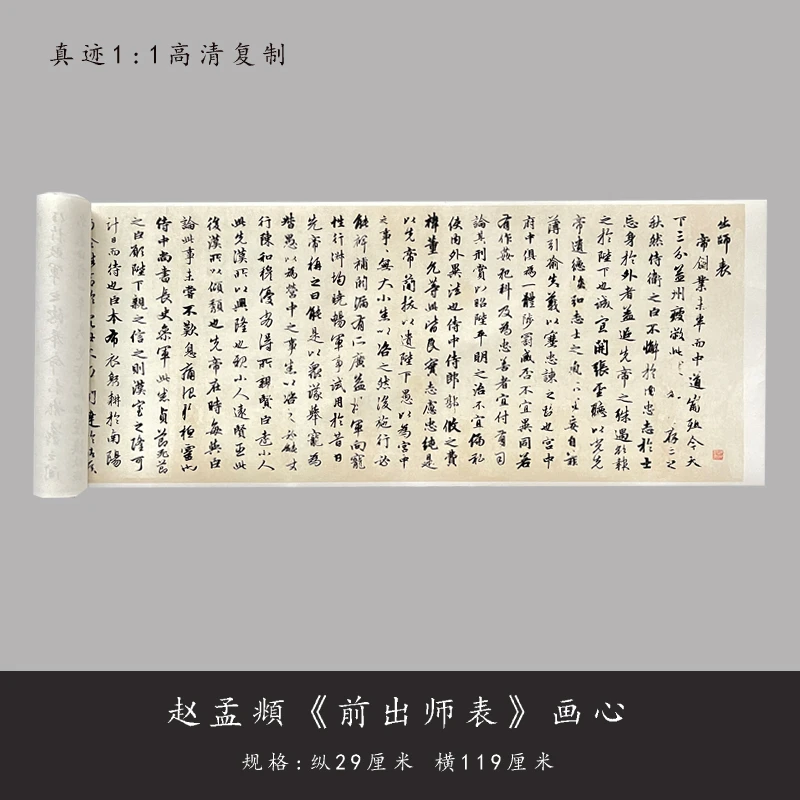 真迹1:1高清复制
出師表
帝創業未半而中道崩殂今天
下三分益州疲敝此存亡之
秋然侍衛之臣不懈於內忠志於士
忘身於外者蓋追先帝之殊遇欲報
之於陛下也誠宜開張聖聽以光先
帝遺德恢和志士之氣不宜妄自菲
薄引喻失義以塞忠諫之路也宮中
府中俱為一體陟罰臧否不宜異同若
有作姦犯科及為忠善者宜付有司
論其刑賞以昭陛平明之治不宜偏私
使內外異法也侍中侍郎郭攸之費
褘董允等此皆良實志慮忠純是
以先帝簡拔以遺陛下愚以為宮中
之事無大小悉以咨之然後施行必
能裨補闕漏有所廣益將軍向寵
性行淑均曉暢軍事試用於昔日
先帝稱之曰能是以眾議舉寵為
督愚以為營中之事悉以咨之必能使
行陳和穆優劣得所親賢臣遠小人
此先漢所以興隆也親小人遠賢臣此
後漢所以傾頹也先帝在時每與臣
論此事未嘗不歎息痛恨於桓靈也
侍中尚書長史參軍此悉貞亮死節
之臣願陛下親之信之則漢室之隆可
計日而待也臣本布衣躬耕於南陽
赵孟頫《前出师表》画心
规格:纵29厘米 横119厘米